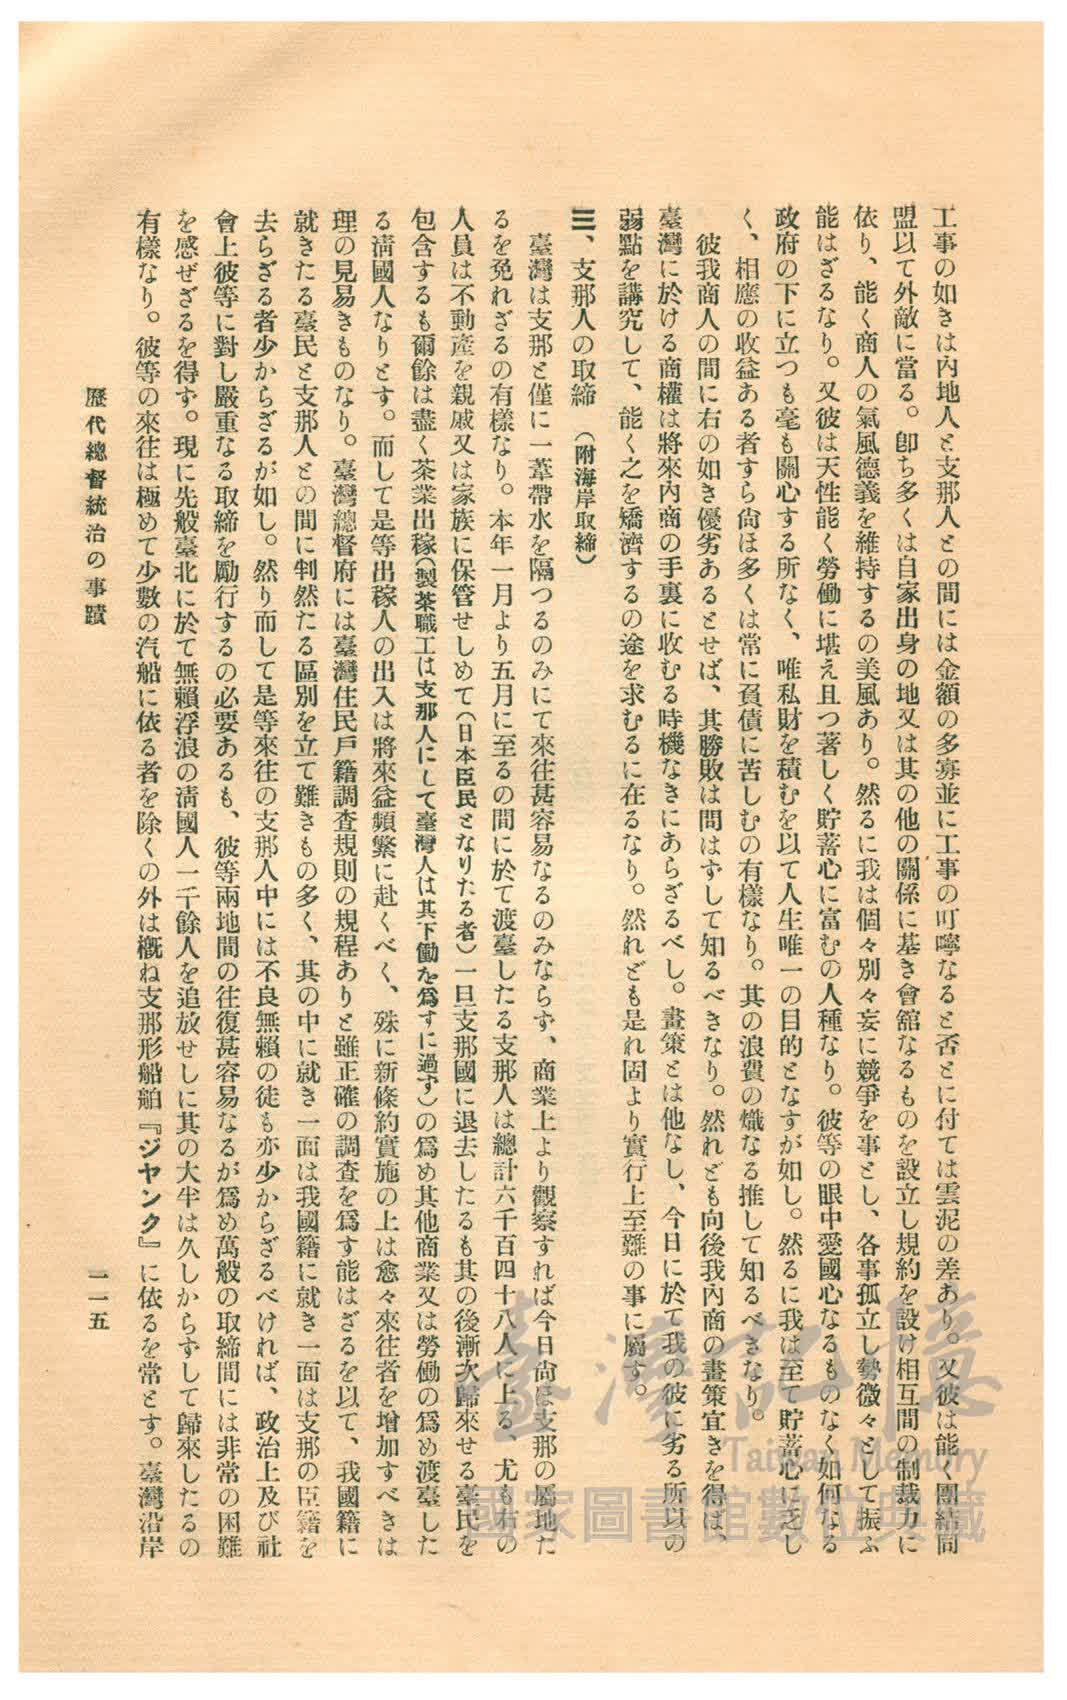 工事の如きは內地人と支那人との間には金額の多寡並に工事の叮嚀なると否とに付ては雲泥の差あり。又彼は能く團結同
盟以て外敵に當る。卽ち多くは自家出身の地又は其の他の關係に基き會舘なるものを設立し規約を設け相互間の制裁力に
依り、能く商人の氣風德義を維持するの美風あり。然るに我は個々別々妄に競爭を事とし、各事孤立し勢微々として振ふ
能はざるなり。又彼は天性能く勞働に堪え且つ著しく貯蓄心に富むの人種なり。彼等の眼中愛國心なるものなく如何なる
政府の下に立つも毫も關心する所なく、唯私財を積むを以て人生唯一の目的となすが如し。然るに我は至て貯蓄心に乏し
く、相應の收益ある者すら尙ほ多くは常に負債に苦しむの有樣なり。其の浪費の熾なる推して知るべきなり。
彼我商人の間に右の如き優劣あるとせば、其勝敗は問はずして知るべきなり。然れども向後我內商の畫策宜きを得ば、
臺灣に於ける商權は將來內商の手裏に收むる時機なきにあらざるべし。畫策とは他なし、今日に於て我の彼に劣る所以の
弱點を講究して、能く之を矯濟するの途を求むるに在るなり。然れども是れ固より實行上至難の事に屬す。
三、支那人の取締（附海岸取締）
臺灣は支那と僅に一葦帶水を隔つるのみにて來往甚容易なるのみならず、商業上より觀察すれば今日尙ほ支那の屬地た
るを免れざるの有樣なり。本年一月より五月に至るの間に於て渡臺したる支那人は總計六千百四十八人に上る、尤も右の
人員は不動產を親戚又は家族に保管せしめて（日本臣民となりたる者）一旦支那國に退去したるも其の後漸次歸來せる臺民を
包含するも爾餘は盡く茶業出稼（製茶職工は支那人にして臺灣人は其下働を爲すに過す）の爲め其他商業又は勞働の爲め渡臺した
る淸國人なりとす。而して是等出稼人の出入は將來益頻繁に赴くべく、殊に新條約實施の上は愈々來往者を增加すべきは
理の見易きものなり。臺灣總督府には臺灣住民戶籍調査規則の規程ありと雖正確の調査を爲す能はざるを以て、我國籍に
就きたる臺民と支那人との間に判然たる區別を立て難きもの多く、其の中に就き一面は我國籍に就き一面は支那の臣籍を
去らざる者少からざるが如し。然り而して是等來往の支那人中には不良無賴の徒も亦少からざるべければ、政治上及び社
會上彼等に對し嚴重なる取締を勵行するの必要あるも、彼等兩地間の往復甚容易なるが爲め萬般の取締間には非常の困難
を感ぜざるを得ず。現に先般臺北に於て無賴浮浪の淸國人一千餘人を追放せしに其の大半は久しからずして歸來したるの
有樣なり。彼等の來往は極めて少數の汽船に依る者を除くの外は槪ね支那形船舶『ジヤンク』に依るを常とす。臺灣沿岸
歷代總督統治の事蹟
二一五
臺灣記憶
Taiwan Memory
國家圖書館數位典藏